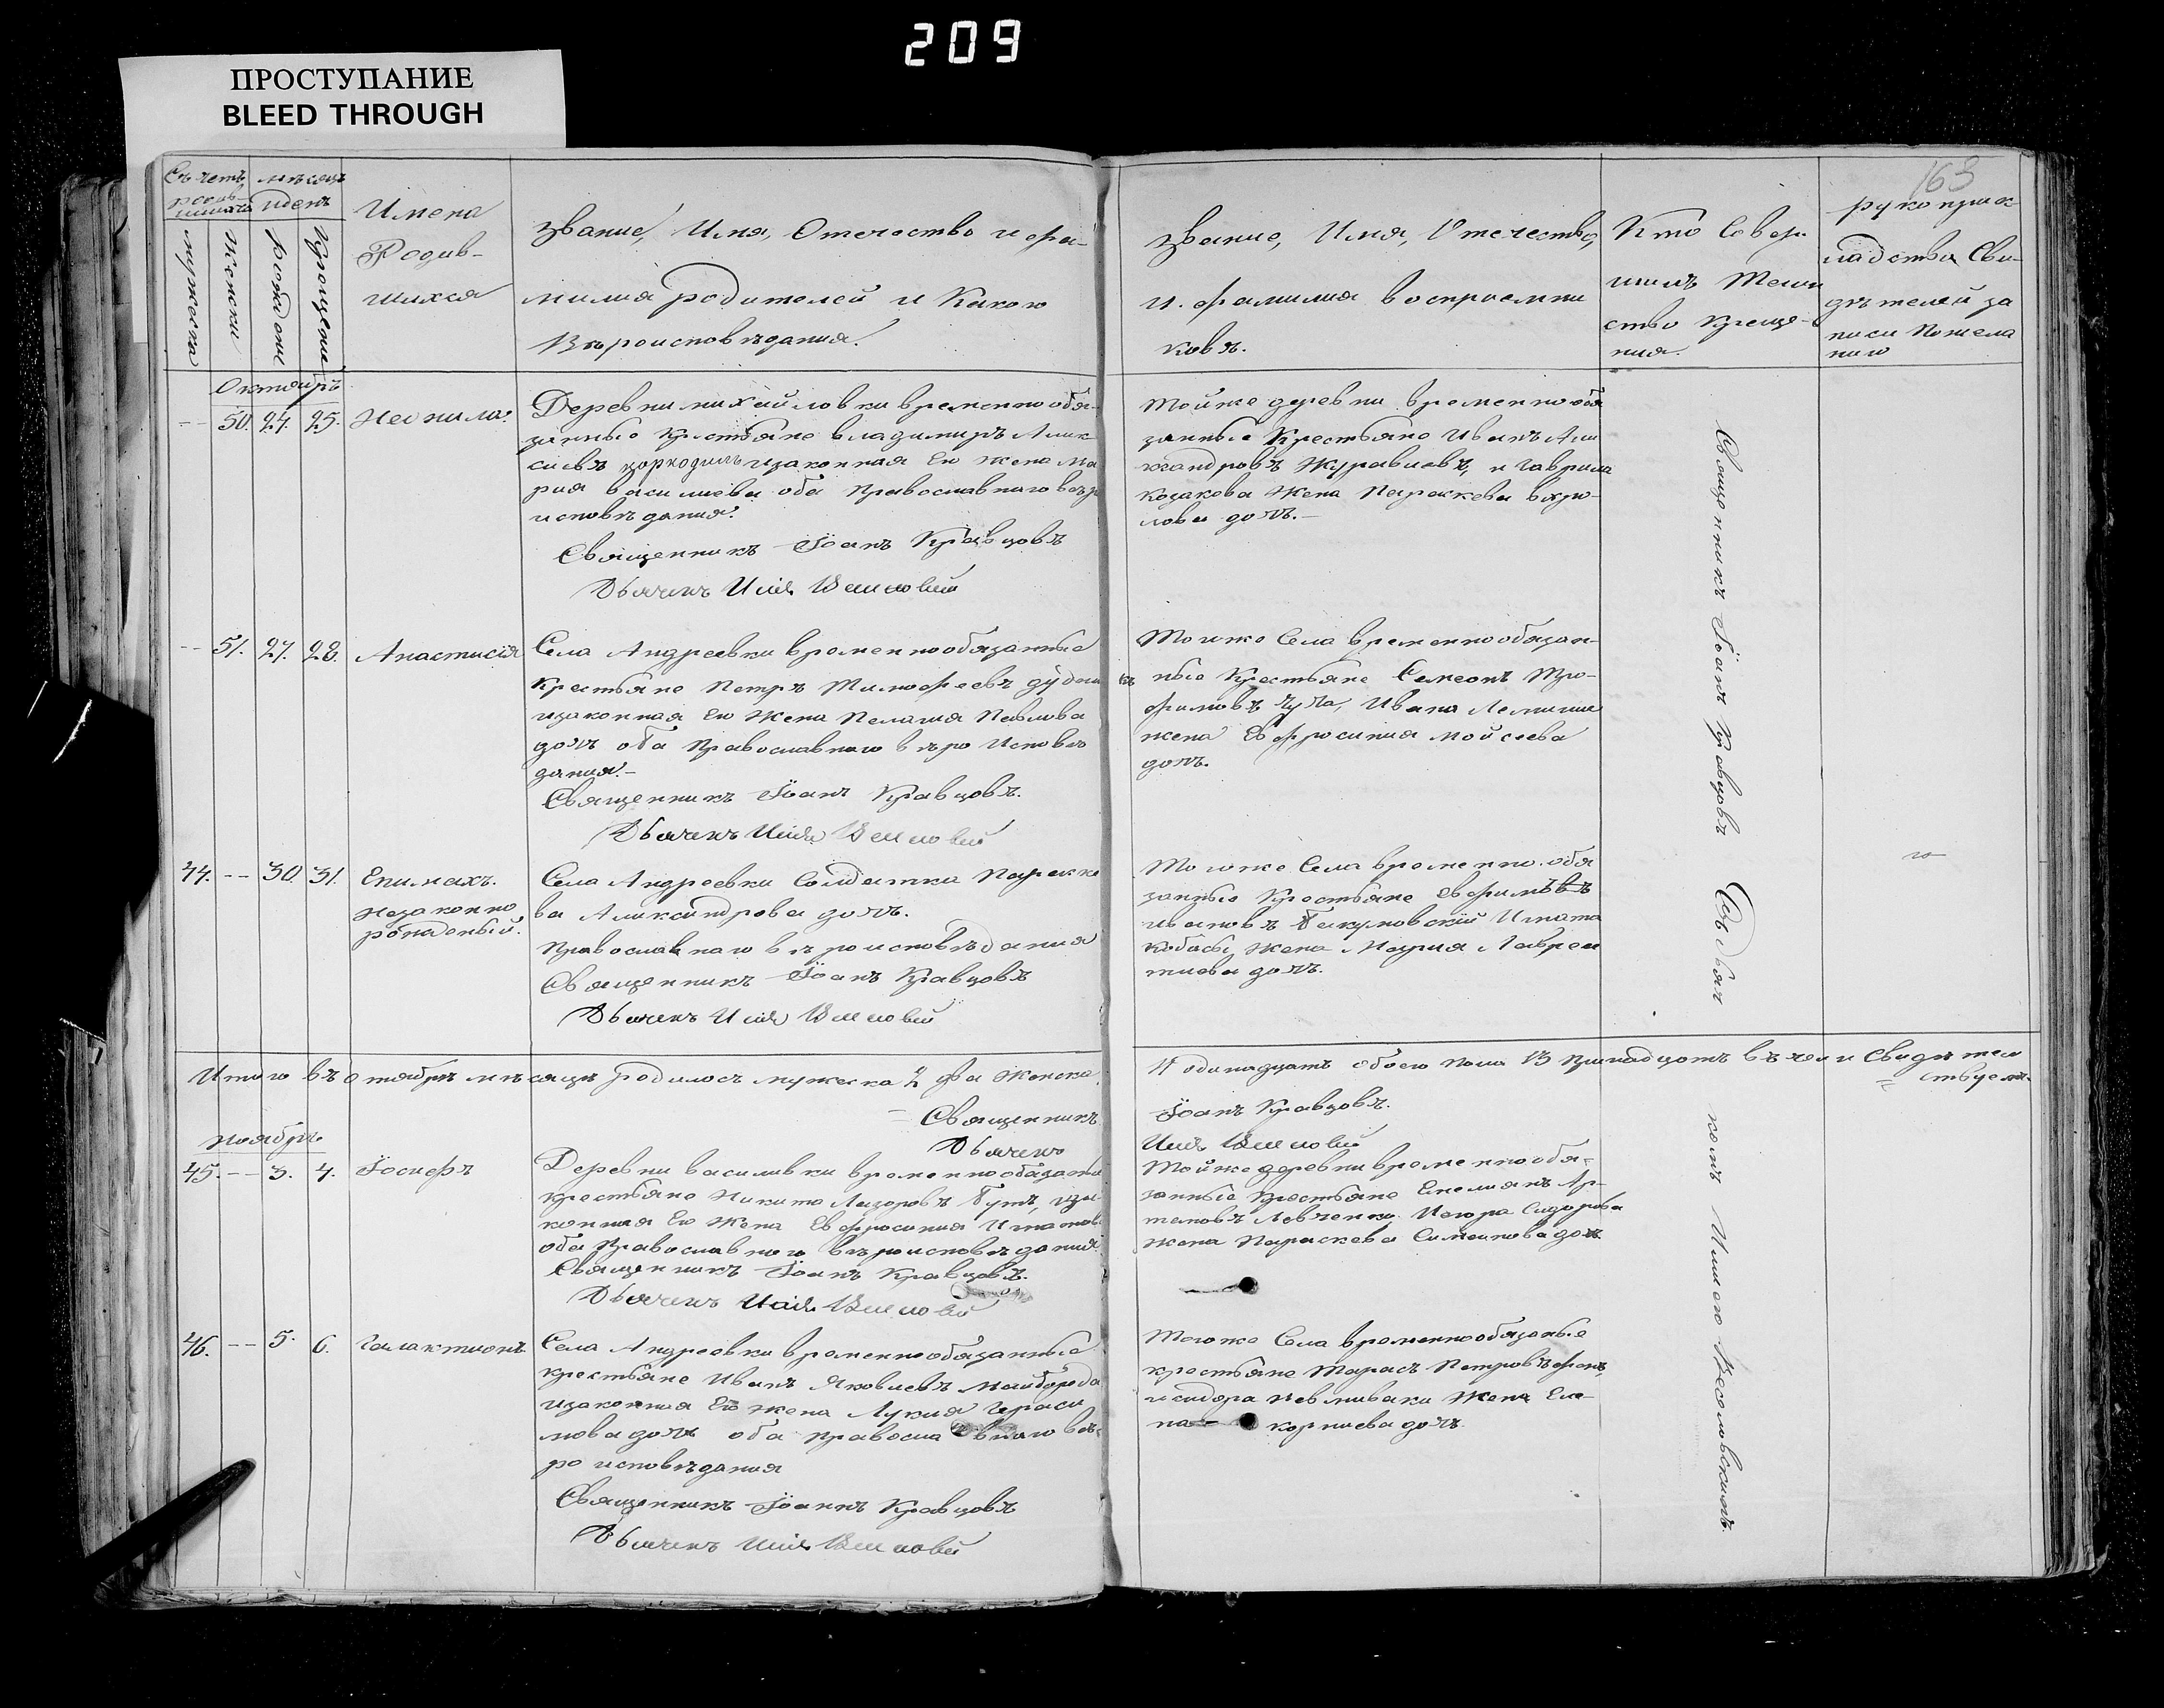 209
ПРОСТУПАНИЕ
BLEED THROUGH
163
Счетъ родив- шихся
мѣсяцъ и день
мужеска
женска
рожденія
крещенія
Имена
Родив-
шихся
Званіе, Имя, Отечество и фа-
милія родителей и какого
Вѣроисповѣданія.
Званіе, Имя, Отечество,
и фамилія воспріемни
ковъ.
Кто Совер
шилъ Таин
ство Креще-
нія.
рукоприк
ладства Сви-
дѣтелей за
писи Пожела
нию
Октябрь
50. 24. 25. Неонила.
Деревни михайловки временнообя-
занные крестьяне владимиръ Алек
сиевъ изаконная Его жена Ма
рия василиева оба Православнаго вѣро
исповѣдания.
Священникъ Іоанъ Кравцовъ
Дьячекъ
Тойже деревни временнообя
занные Крестьяне Иванъ Але
ксандровъ Журавлевъ, и гаврила
козакова жена Параскева
дочъ.
51. 27. 28. Анастасія
Села Андреевки временнообязанные
крестьяне Петръ Тимофеевъ
изаконная Его жена Пелагия Павлова
дочъ оба Православнаго вѣро Исповѣ
дания.
Священникъ Іоанъ Кравцовъ.
Дьячекъ
Тогоже Села временнообязан-
ные Крестьяне Симеонъ Тро-
фимовъ Ивана
жена Евфросиния мойсеева
дочъ.
44. 30. 31. Епимахъ.
незаконно
рожденый.
Села Андреевки Солдатка Параске
ва Александрова дочъ.
Православнаго вѣроисповѣдания
Священникъ Іоанъ Кравцовъ
Дьячекъ
Тогоже Села временно обя
занные Крестьяне
ивановъ Игната
жена Мария Лаврен
тиева дочъ.
Итого въ октябрѣ мѣсяцѣ родилось мужеска 2 два женска
11 одинадцать обоего пола 13 тринадцать въ чемъ и Свидѣтел
ствуемъ.
Священникъ Іоанъ Кравцовъ.
Дьячекъ
ноябрь
45. 3. 4. Іосифъ
Деревни василивки временнообязаны
крестьяне Никита Лазоровъ изо
конная Его жена Евфросиния Игнатова
оба Православнаго вѣроисповѣдания
Священникъ Іоанъ Кравцовъ.
Дьячекъ
Тойже деревни временнообя-
занные Крестьяне Емелианъ Ар-
темовъ Левченко Сидорова
жена Параскева Симеонова дочъ.
46. 5. 6. Галактионъ
Села Андреевки временнообязанные
крестьяне Иванъ Яковлевъ Майборода
изаконная Его жена Лукия Гераси
мова дочъ оба Православнаго вѣ-
ро исповѣдания
Священникъ Іоаннъ Кравцовъ
Дьячекъ
Тогоже Села временнообязаные
крестьяне Тарасъ Петровъ
исидора жена Еле-
на корниева дочъ
Священникъ Іоанъ Кравцовъ Съ Дьяч
комъ